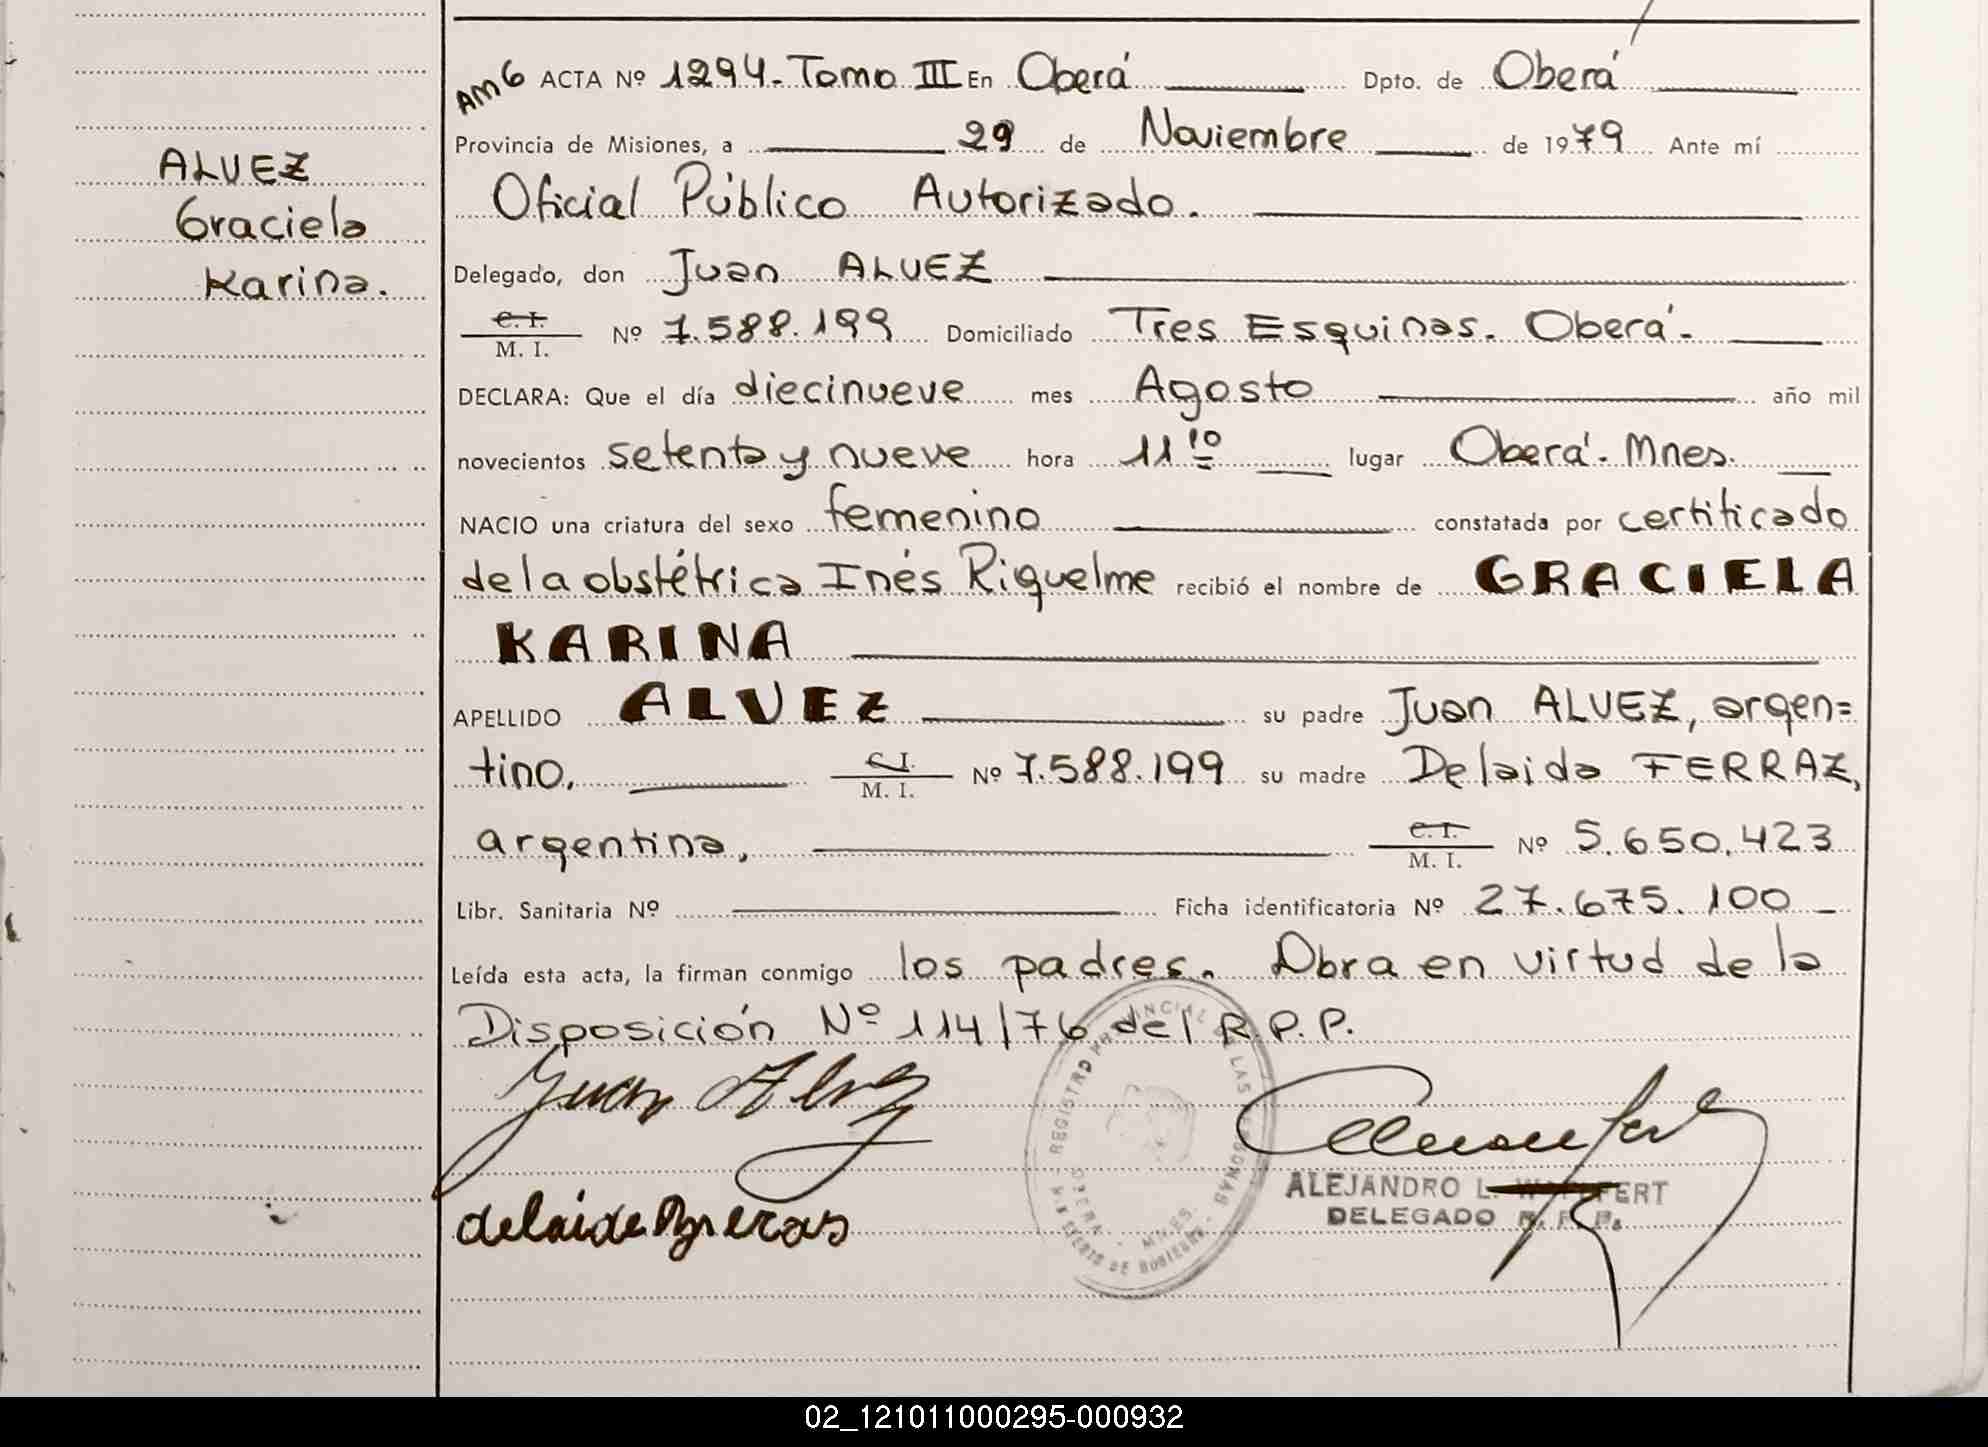 AM6 ACTA Nº 1294.- Tomo III En Oberá Dpto. de Oberá
Provincia de Misiones, a 29 de Noviembre de 1979 Ante mí
ALVEZ
Graciela
Karina.
Oficial Público Autorizado.
Delegado, don Juan ALVEZ
C. I.
M. I. Nº 7.588.199 Domiciliado Tres Esquinas. Oberá.-
DECLARA: Que el día diecinueve mes Agosto año mil
novecientos setenta y nueve hora 11 10 lugar Oberá.- Mnes.
NACIO una criatura del sexo femenino constatada por certificado
de la obstétrica Inés Riquelme recibió el nombre de GRACIELA
KARINA
APELLIDO ALVEZ su padre Juan ALVEZ, argen=
tino, C. I. M. I. Nº 7.588.199 su madre Delaida FERRAZ,
argentina, C. I. M. I. Nº 5.650.423
Libr. Sanitaria Nº Ficha identificatoria Nº 27.675.100
Leída esta acta, la firman conmigo los padres. Obra en virtud de la
Disposición Nº 114/76 del R.P.P.
Juan Alvez
REGISTRO PROVINCIAL DE LAS PERSONAS
OBERA - MNES.
ALEJANDRO L.
DELEGADO R. P. P.
02_121011000295-000932